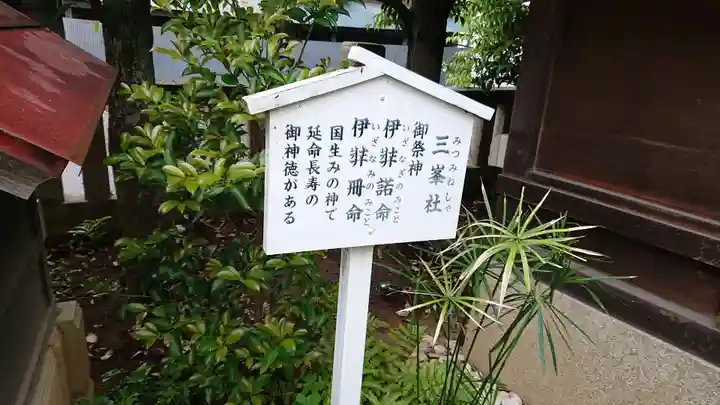 三峯社
みつみねしゃ
御祭神
伊弉諾命
いざなぎのみこと
伊弉冊命
いざなみのみこと
国生みの神で
延命長寿の
御神徳がある